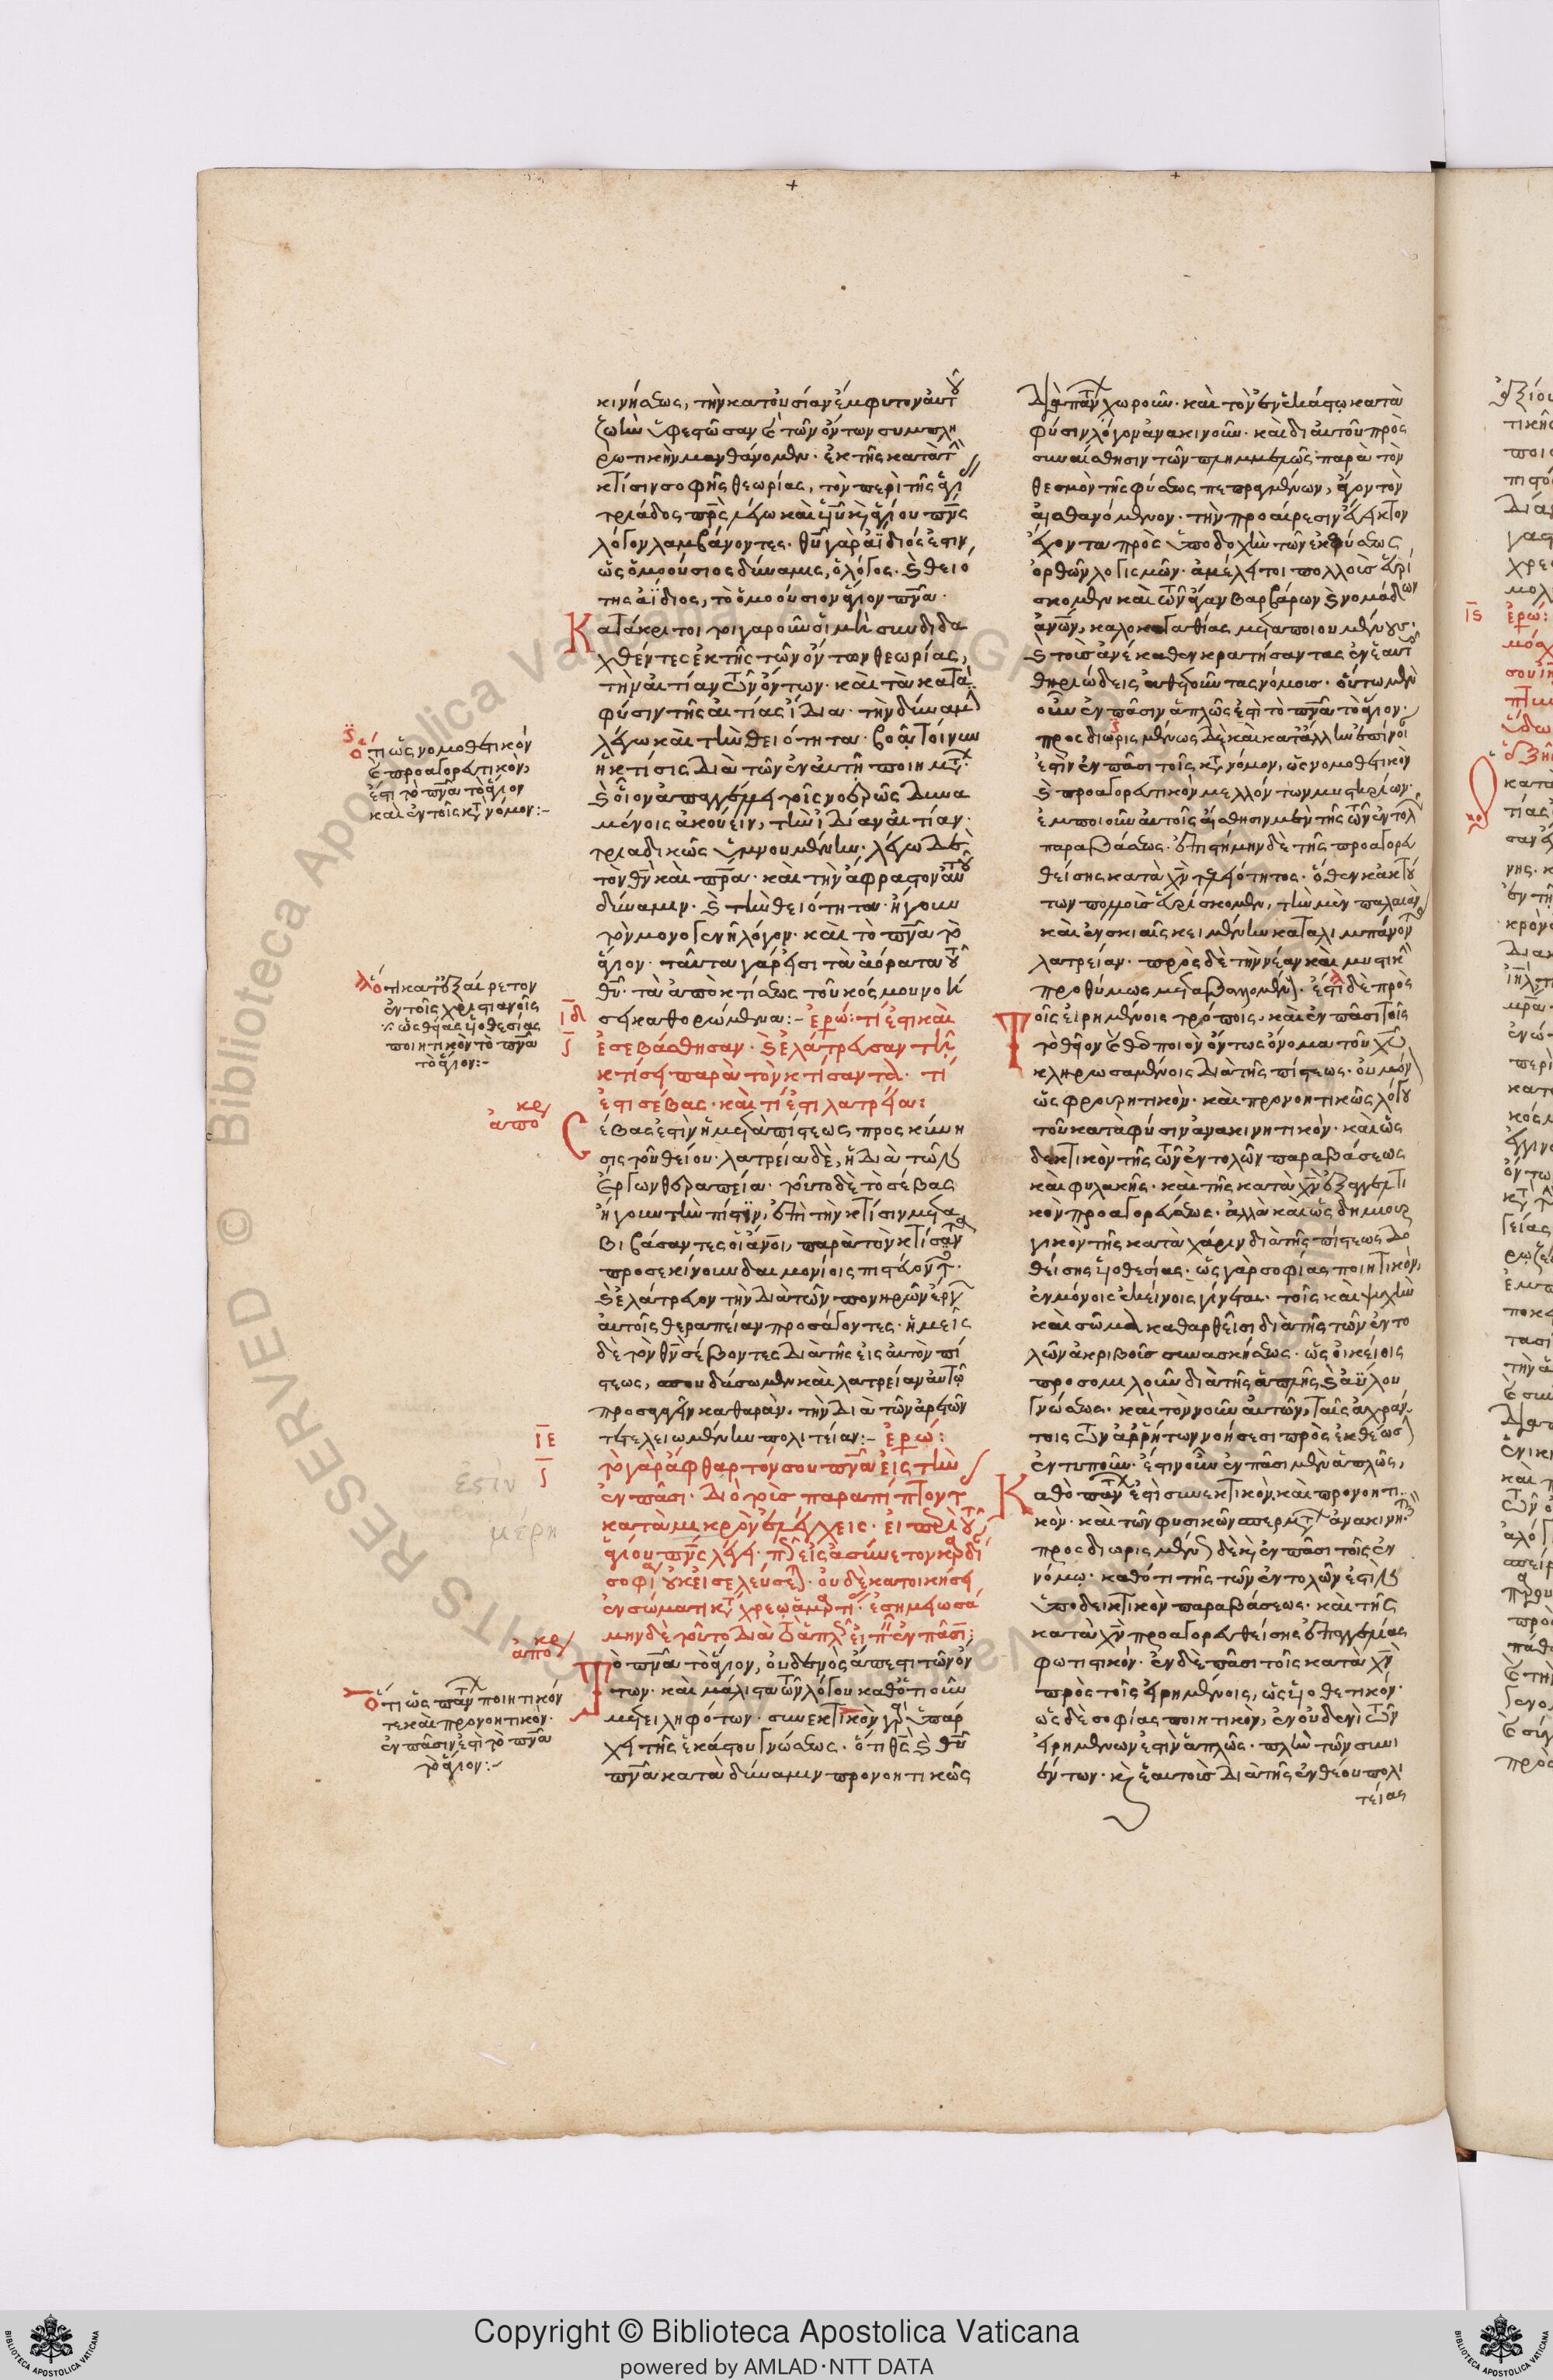 κινήσεως, τὴν κατ' οὐσίαν ἔμφυτον αὐτοῦ
ζωὴν ὑφεστῶσαν καὶ τῶν ὄντων συμπλη
ρωτικὴν μανθάνομεν. ἐκ τῆς κατὰ τὴν
κτίσιν σοφῆς θεωρίας, τὸν περὶ τῆς ἁγί
τριάδος πρς λέγω καὶ υἱοῦ καὶ ἁγίου πνς
λόγον λαμβάνοντες. θῦ γὰρ ἀΐδιός ἐστιν
ὡς ὁμοούσιος δύναμις, ὁ λόγος. καὶ θειό
της ἀΐδιος, τὸ ὁμοούσιον ἅγιον πνα.
Κατάκριτοι τοιγαροῦν οἱ μὴ συνδιδα
χθέντες ἐκ τῆς τῶν ὄντων θεωρίας,
τὴν αἰτίαν τῶν ὄντων. καὶ τὰ κατὰ
φύσιν τῆς αἰτίας ἴδια. τὴν δύναμιν
λέγω καὶ τὴν θειότητα. βοᾷ τοίνυν
ἡ κτίσις διὰ τῶν ἐν αὐτῇ ποιημάτων.
καὶ οἷον ἀπαγγέλλει τοῖς νοερῶς δυνα
μένοις ἀκούειν, τὴν ἰδίαν αἰτίαν.
τριαδικῶς ὑμνουμένην. λέγω δὲ
τὸν θν καὶ πρα. καὶ τὴν ἄφραστον αὐτοῦ
δύναμιν. καὶ τὴν θειότητα. ἤγουν
τὸν μονογενῆ λόγον. καὶ τὸ πνα τὸ
ἅγιον. ταῦτα γάρ εἰσι τὰ ἀόρατα τοῦ
θυ. τὰ ἀπὸ κτίσεως τοῦ κόσμου νοή
σει καθορώμενα:- ἐρώ: τί ἐστι καὶ
ἐσεβάσθησαν. καὶ ἐλάτρευσαν τῇ
κτίσει παρὰ τὸν κτίσαντα. τί
ἐστι σέβας. καὶ τί ἐστι λατρεία:
Σέβας ἐστὶν ἡ μετὰ πίστεως προσκύνη
σις τοῦ θείου. λατρεία δὲ, ἡ διὰ τῶν
ἔργων θεραπεία. τοῦτο δὲ τὸ σέβας
ἤγουν τὴν πίστιν, ἐπὶ τὴν κτίσιν μετα
βιβάσαντες οἱ ἄνοι, παρὰ τὸν κτίσαντα
προσεκύνουν δαιμονίοις πιστεύοντες.
καὶ ἐλάτρευον τὴν διὰ τῶν πονηρῶν ἔργων
αὐτοῖς θεραπείαν προσάγοντες. ἡμεῖς
δὲ τὸν θν σέβοντες διὰ τῆς εἰς αὐτὸν πί
στεως, σπουδάσωμεν καὶ λατρείαν αὐτῷ
προσαγαγεῖν καθαρὰν. τὴν διὰ τῶν ἀρετῶν
τετελειωμένην πολιτείαν:- ἐρώ:
τὸ γὰρ ἄφθαρτόν σου πνα ἐστὶν
ἐν πᾶσι. διὸ τοὺς παραπίπτοντας
κατὰ μικρὸν ἐλέγχεις. εἰ περὶ τοῦ
ἁγίου πνς λέγει. πῶς εἰς ἀσύνετον καρδίαν
σοφία οὐκ εἰσελεύσεται. οὐδὲ κατοικήσει
ἐν σώματι κατάχρεῳ ἁμαρτίας. ἐσημειωσά
μην δὲ τοῦτο διὰ τὸ ἁπλῶς εἰπεῖν ἐν πᾶσι:
Τὸ πνα τὸ ἅγιον, οὐδενὸς ἄπεστι τῶν ὄν
των. καὶ μάλιστα τῶν λόγου καθότι οὖν
μετειληφότων. συνεκτικὸν γὰρ ὑπάρ
χει τῆς ἑκάστου γνώσεως. ὅτι θς καὶ θυ
πνα κατὰ δύναμιν προνοητικῶς
διὰ πάντων χωροῦν. καὶ τὸν ἐν ἑκάστῳ κατὰ
φύσιν λόγον ἀνακινοῦν. καὶ δι' αὐτοῦ πρὸς
συναίσθησιν τῶν πλημμελῶς παρὰ τὸν
θεσμὸν τῆς φύσεως πεπραγμένων, ἄγον τὸν
αἰσθανόμενον. τὴν προαίρεσιν εὔεικτον
ἔχοντα πρὸς ὑποδοχὴν τῶν ἐκ φύσεως
ὀρθῶν λογισμῶν. ἀμέλει τοι πολλοὺς εὑρί
σκομεν καὶ τῶν ἄγαν βαρβάρων καὶ νομάδων
ἀνων, καλοκαγαθίας μεταποιουμένους.
καὶ τοὺς ἀνέκαθεν κρατήσαντας ἐν ἑαυτοῖς
θηριώδεις ἀθετοῦντας νόμους. οὕτω μὲν
οὖν ἐν πᾶσιν ἁπλῶς ἐστὶ τὸ πνα τὸ ἅγιον.
προσδιωρισμένως δὲ καὶ κατ' ἄλλην ἐπίνοιαν
ἐστὶν ἐν πᾶσι τοῖς κατὰ νόμον, ὡς νομοθετικὸν
καὶ προαγορευτικὸν μελλόντων μυστηρίων.
ἐμποιοῦν αὐτοῖς αἴσθησιν μὲν τῆς τῶν ἐντολῶν
παραβάσεως. ἐπιστήμην δὲ τῆς προαγορευ
θείσης κατὰ χν τελειότητος. ὅθεν κἀκ τού
των πολλοὺς εὑρίσκομεν, τὴν μὲν παλαιὰν
καὶ ἐν σκιαῖς κειμένην καταλιμπάνοντας
λατρείαν. πρὸς δὲ τὴν νέαν καὶ μυστικὴν
προθύμως μεταβαλλομένους. ἔστι δὲ πρὸς
Τοῖς εἰρημένοις τρόποις, καὶ ἐν πᾶσι τοῖς
τὸ θεῖον καὶ θεοποιὸν ὄντως ὄνομα τοῦ χυ
κληρωσαμένοις διὰ τῆς πίστεως. οὐ μόνον
ὡς φρουρητικὸν. καὶ προνοητικῶς λόγου
τοῦ κατὰ φύσιν ἀνακινητικόν. καὶ ὡς
δεικτικὸν τῆς τῶν ἐντολῶν παραβάσεως
καὶ φυλακῆς. καὶ τῆς κατὰ χν ἐξαγγελτι
κὸν προαγορεύσεως. ἀλλὰ καὶ ὡς δημιουρ
γικὸν τῆς κατὰ χάριν διὰ τῆς πίστεως δο
θείσης υἱοθεσίας. ὡς γὰρ σοφίας ποιητικὸν,
ἐν μόνοις ἐκείνοις γίνεται. τοῖς καὶ ψυχὴν
καὶ σῶμα καθαρθεῖσι διὰ τῆς τῶν ἐντο
λῶν ἀκριβοῦς συνασκήσεως. ὡς οἰκείοις
προσομιλοῦν διὰ τῆς ἁπλῆς καὶ ἀΰλου
γνώσεως. καὶ τὸν νοῦν αὐτῶν, ταῖς ἀχράν
τοις τῶν ἀρρήτων νοήσεσι πρὸς ἐκθέωσιν
ἐντυποῦν. ἔστιν οὖν ἐν πᾶσι μὲν ἁπλῶς,
Καθὸ πάντων ἐστὶ συνεκτικὸν. καὶ προνοητι
κὸν. καὶ τῶν φυσικῶν σπερμάτων ἀνακινητικόν.
προσδιωρισμένως δὲ καὶ ἐν πᾶσι τοῖς ἐν
νόμῳ. καθότι τῆς τῶν ἐντολῶν ἐστὶν
ὑποδεικτικὸν παραβάσεως. καὶ τῆς
κατὰ χν προαγορευθείσης ἐπαγγελίας
φωτιστικόν. ἐν δὲ πᾶσι τοῖς κατὰ χν
πρὸς τοῖς εἰρημένοις, ὡς υἱοθετικόν.
ὡς δὲ σοφίας ποιητικὸν, ἐν οὐδενὶ τῶν
εἰρημένων ἐστὶν ἁπλῶς. πλὴν τῶν συνι
έντων. καὶ ἑαυτοὺς διὰ τῆς ἐνθέου πολι
τείας
ὅτι ὡς νομοθετικὸν
καὶ προαγορευτικὸν,
ἐστι τὸ πνα τὸ ἅγιον
καὶ ἐν τοῖς κατὰ νόμον:-
ὅτι κατ' ἐξαίρετον
ἐν τοῖς χριστιανοῖς
ὡς θείας υἱοθεσίας
ποιητικὸν τὸ πνα
τὸ ἅγιον:-
ΙΔ
ἀπό κρ
ΙΕ
ἀπό κρ
ὅτι ὡς πάντων ποιητικόν
τε καὶ προνοητικὸν.
ἐν πᾶσιν ἐστὶ τὸ πνα
τὸ ἅγιον:-
Ις
ἐρώ:
Copyright © Biblioteca Apostolica Vaticana
powered by AMLAD·NTT DATA
BIBLIOTECA APOSTOLICA VATICANA
BIBLIOTECA APOSTOLICA VATICANA